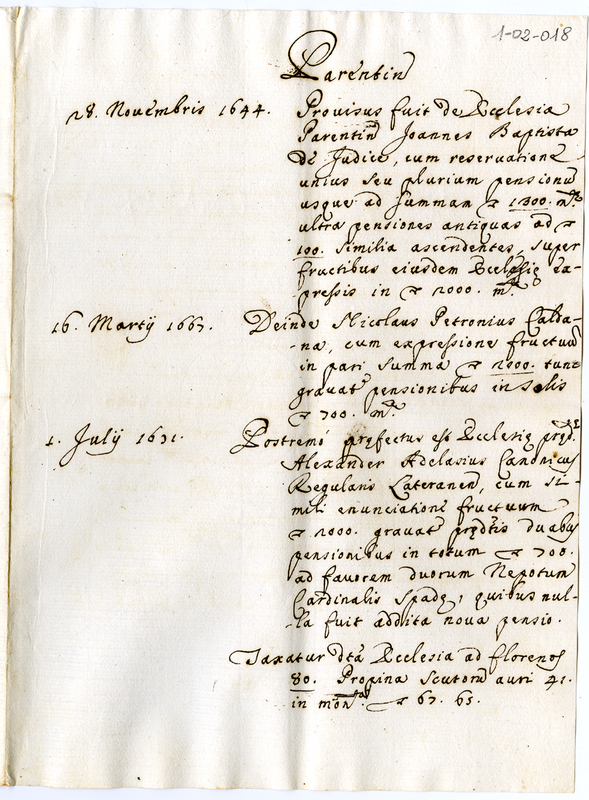 1-02-018
Parentin
28. Novembris 1644. Provisus fuit de Ecclesia
Parentin Joannes Baptista
de Judice, cum reservatione
unius seu plurium pensionu
usque ad summam 1300. mta
ultra pensiones antiquas ad
100. similia ascendentes, super
fructibus eiusdem Ecclesię ex-
pressis in 2000. mta
16. Martij 1667. Deinde Nicolaus Petronius Calda-
-na, cum expressione fructuu
in pari summa 2000. tunc
gravat pensionibus in solis
700. mta
1. Julij 1671. Postremo pręfectus est Ecclesię pręd.
Alexander Adelasius Canonicus
Regularis Lateranen, cum si-
mili enunciatione fructuum
2000. gravat prędtis duabus
pensionibus in totum 700.
ad favorem duorum Nepotum
Cardinalis Spadę, quibus nul-
-la fuit addita nova pensio.
Taxatur dta Ecclesia ad florenos
80. Propina scutoru auri 41.
in mon 67. 65.